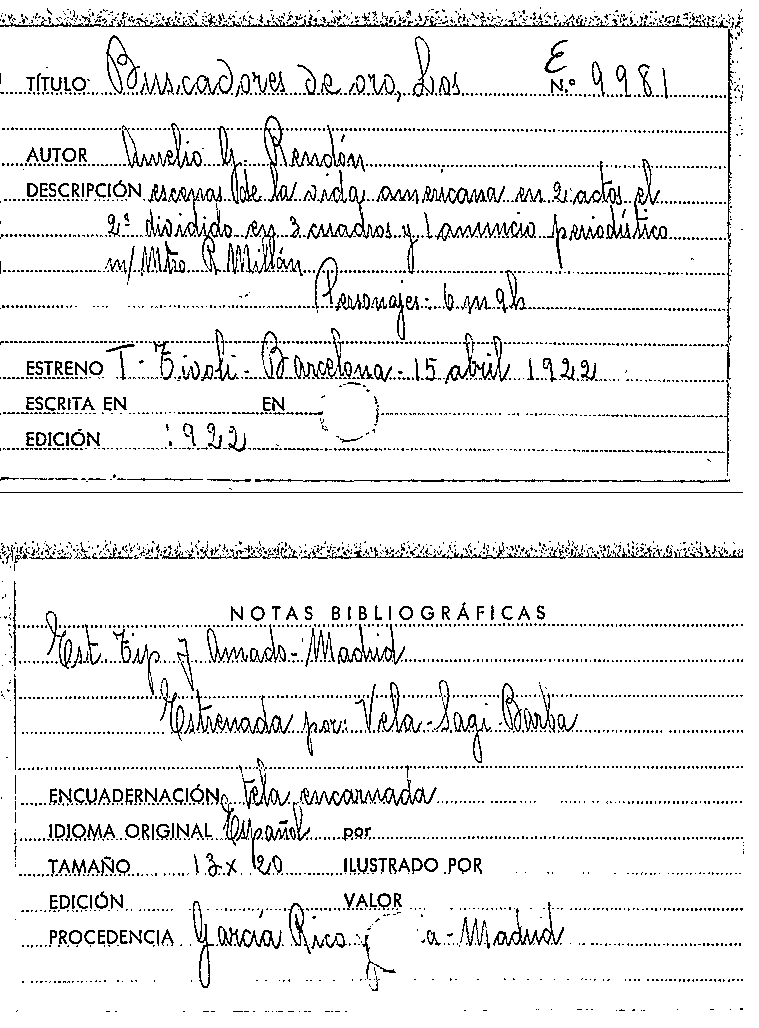 E
TÍTULO Buscadores de oro, Los N.º 9981
AUTOR Amelio G. Rendón
DESCRIPCIÓN escenas de la vida americana en 2 actos el
2º dividido en 3 cuadros y 1 anuncio periodístico
m/ Mtro R Millán
Personajes: 6 m 9h
ESTRENO T- Tivoli- Barcelona- 15 abril 1922
ESCRITA EN EN
EDICIÓN 1922
NOTAS BIBLIOGRÁFICAS
Est. Tip J Amado- Madrid
Estrenada por: Vela-Sagi-Barba
ENCUADERNACIÓN tela encarnada
IDIOMA ORIGINAL Español por
TAMAÑO 13 x 20 ILUSTRADO POR
EDICIÓN VALOR
PROCEDENCIA García Rico y a- Madrid